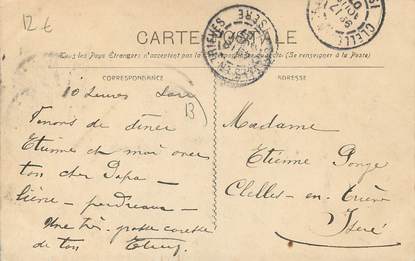 12 €
CARTE POSTALE
Tous les Pays Étrangers n'acceptent pas la
(Se renseigner à la Poste)
CORRESPONDANCE
ADRESSE
CLELLES
ISÈRE
10 heures soir
13
Venons de dîner
Etienne et moi avec
ton cher Papa –
lièvre – perdreaux –
Une très grosse caresse
de ton
Madame
Etienne Ponge
Clelles-en-Trièves
Isère